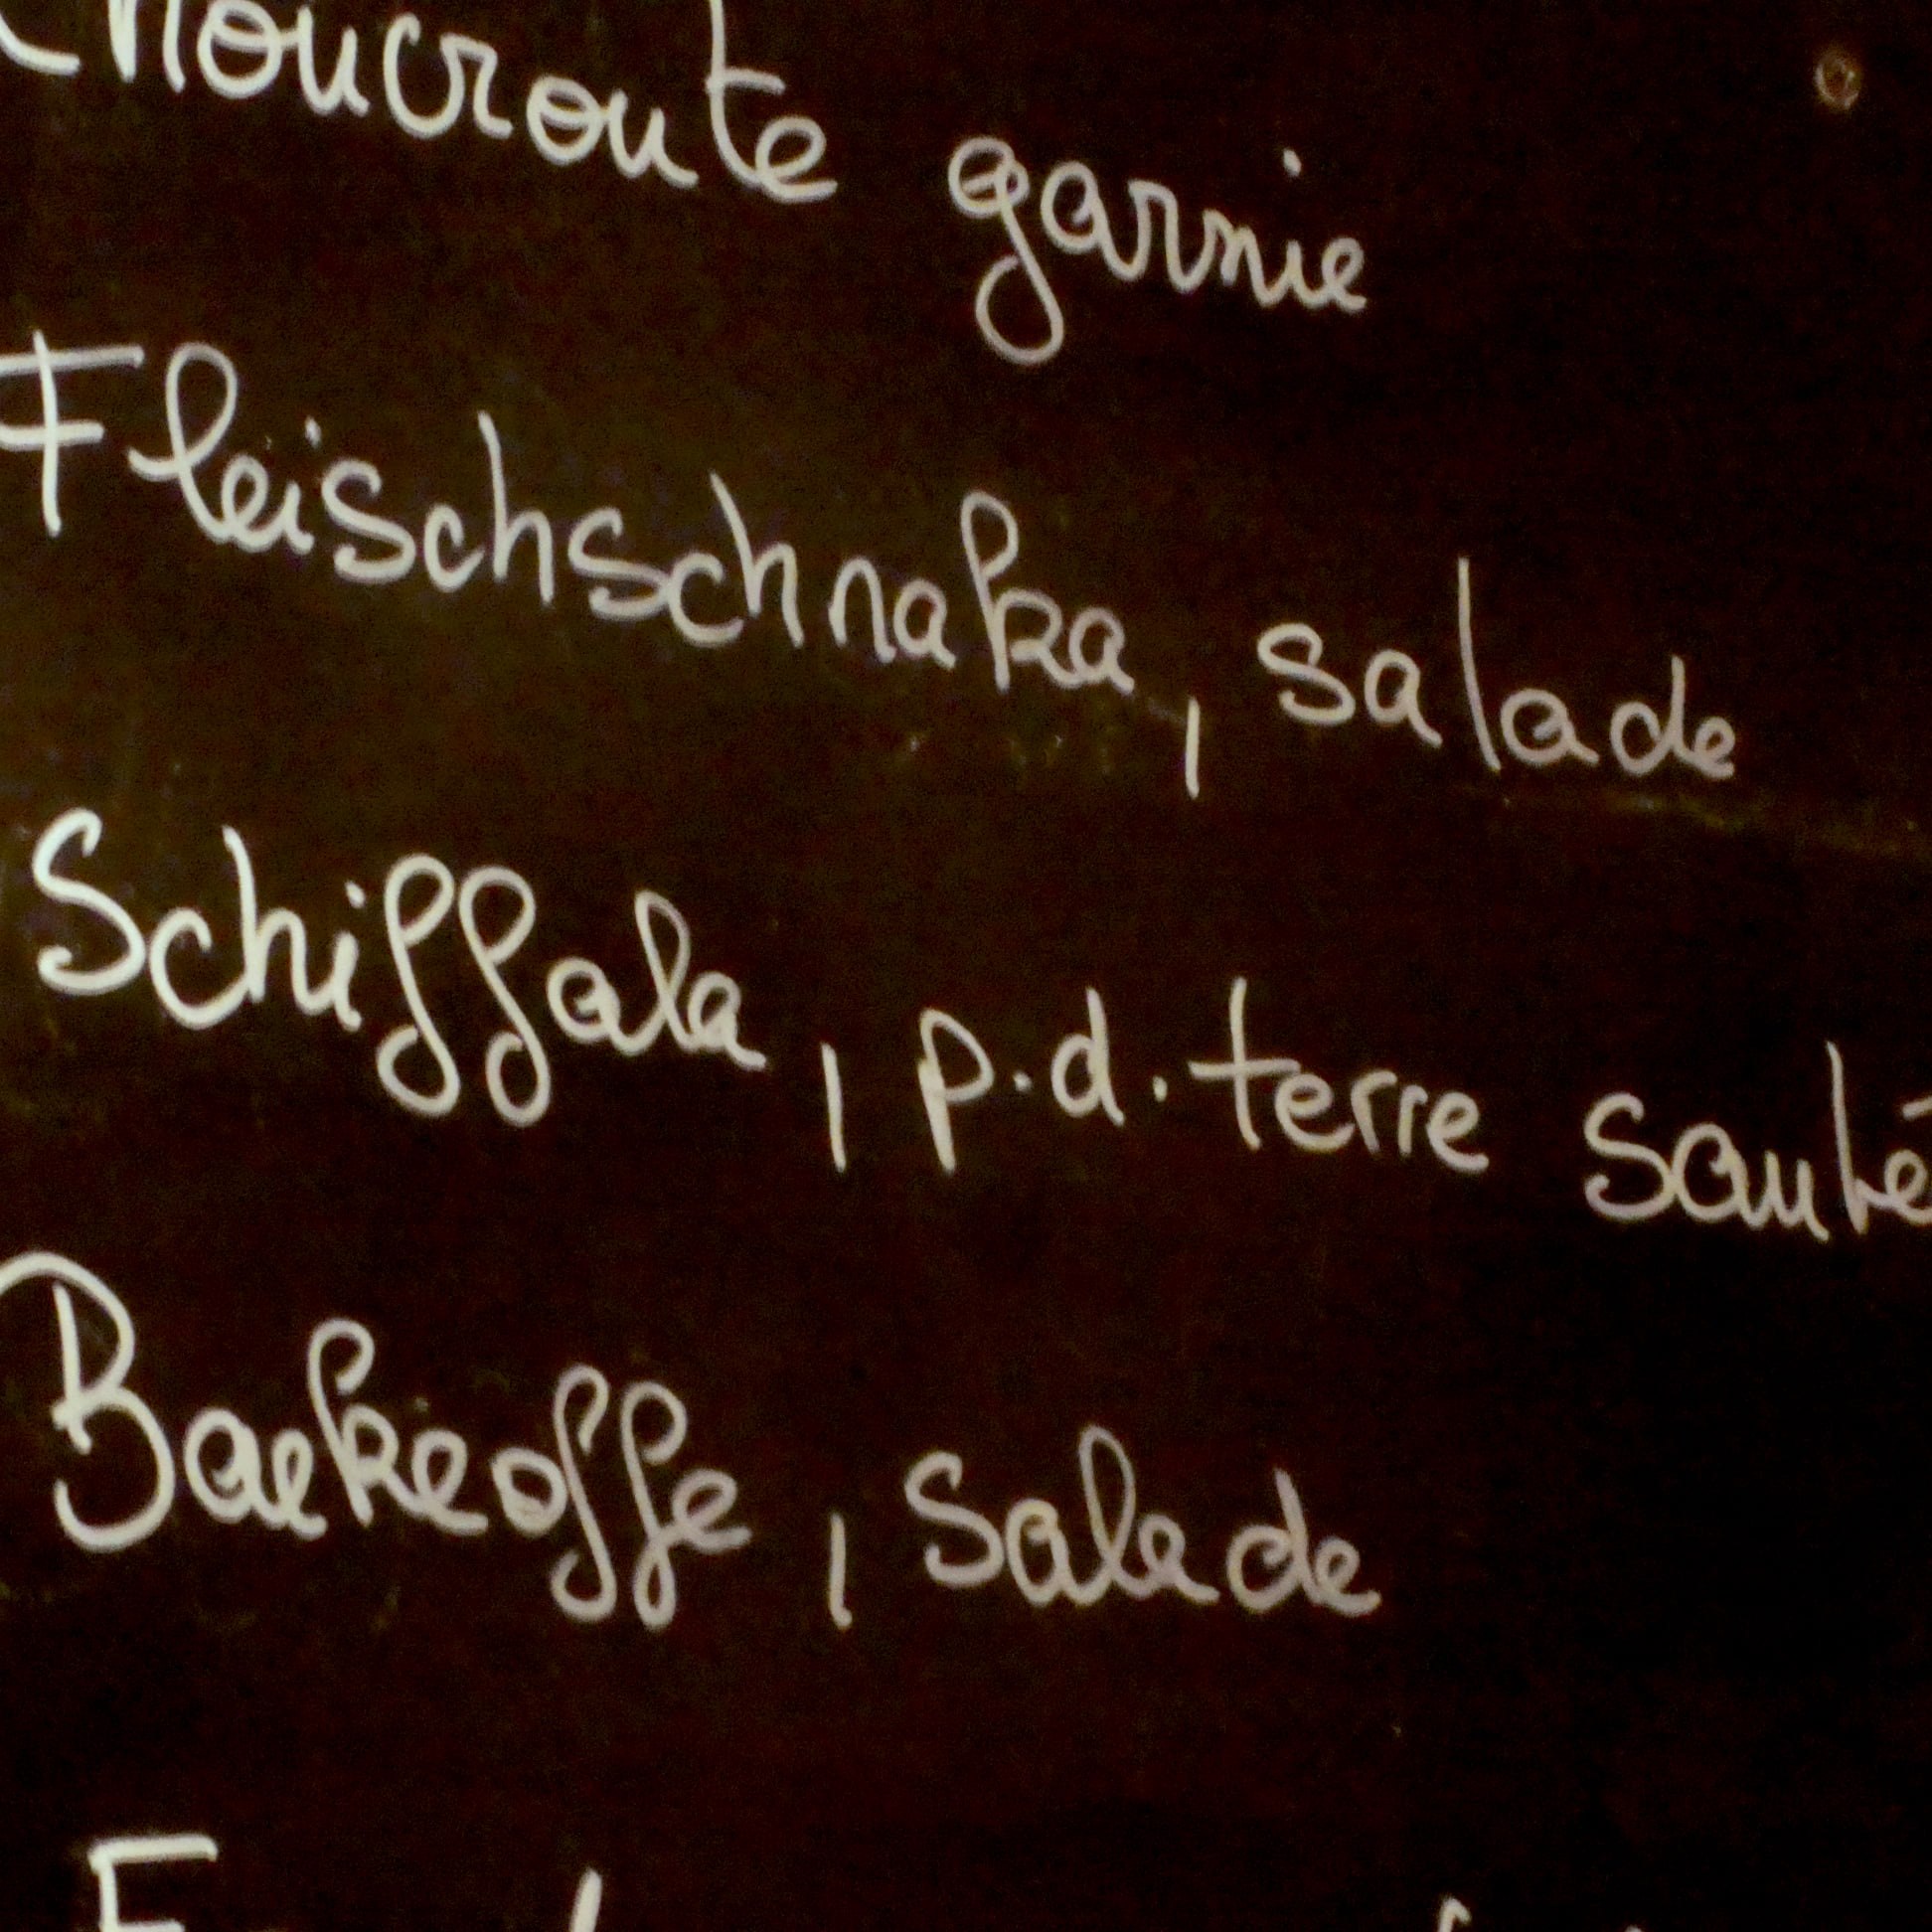 Choucroute garnie
Fleischschnaka, salade
Schiffala, p.d.terre sauté
Baekeoffe, salade